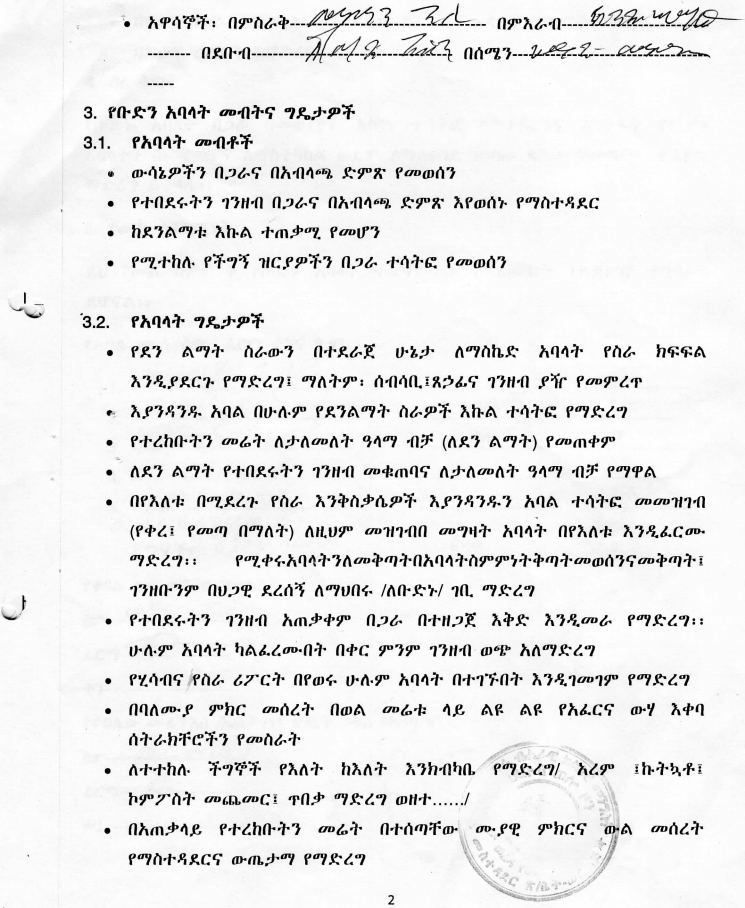 • አዋሳኞች፡ በምስራቅ---------------------------- በምእራብ--------------------
-------- በደቡብ-------------------------- በሰሜን--------------------------
-----
3. የቡድን አባላት መብትና ግዴታዎች
3.1. የአባላት መብቶች
• ውሳኔዎችን በጋራና በአብላጫ ድምጽ የመወሰን
• የተበደሩትን ገንዘብ በጋራና በአብላጫ ድምጽ እየወሰኑ የማስተዳደር
• ከደንልማቱ እኩል ተጠቃሚ የመሆን
• የሚተከሉ የችግኝ ዝርያዎችን በጋራ ተሳትፎ የመወሰን
3.2. የአባላት ግዴታዎች
• የደን ልማት ስራውን በተደራጀ ሁኔታ ለማስኬድ አባላት የስራ ክፍፍል
እንዲያደርጉ የማድረግ፤ ማለትም፡ ሰብሳቢ፤ጸኃፊና ገንዘብ ያዥ የመምረጥ
• እያንዳንዱ አባል በሁሉም የደንልማት ስራዎች እኩል ተሳትፎ የማድረግ
• የተረከቡትን መሬት ለታለመለት ዓላማ ብቻ (ለደን ልማት) የመጠቀም
• ለደን ልማት የተበደሩትን ገንዘብ መቁጠባና ለታለመለት ዓላማ ብቻ የማዋል
• በየእለቱ በሚደረጉ የስራ እንቅስቃሴዎች እያንዳንዱን አባል ተሳትፎ መመዝገብ
(የቀረ፤ የመጣ በማለት) ለዚህም መዝገብበ መግዛት አባላት በየእለቱ እንዲፈርሙ
ማድረግ፡፡ የሚቀሩአባላትንለመቅጣትበአባላትስምምነትቅጣትመወሰንናመቅጣት፤
ገንዘቡንም በህጋዊ ደረሰኝ ለማህበሩ /ለቡድኑ/ ገቢ ማድረግ
• የተበደሩትን ገንዘብ አጠቃቀም በጋራ በተዘጋጀ እቅድ እንዲመራ የማድረግ፡፡
ሁሉም አባላት ካልፈረሙበት በቀር ምንም ገንዘብ ወጭ አለማድረግ
• የሂሳብና የስራ ሪፖርት በየወሩ ሁሉም አባላት በተገኙበት እንዲገመገም የማድረግ
• በባለሙያ ምክር መሰረት በወል መሬቱ ላይ ልዩ ልዩ የአፈርና ውሃ እቀባ
ሰትራክቸሮችን የመስራት
• ለተተከሉ ችግኞች የእለት ከእለት እንክብካቤ የማድረግ/ አረም ፤ኩትኳቶ፤
ኮምፖስት መጨመር፤ ጥበቃ ማድረግ ወዘተ……/
• በአጠቃላይ የተረከቡትን መሬት በተሰጣቸው ሙያዊ ምክርና ውል መሰረት
የማስተዳደርና ውጤታማ የማድረግ
2